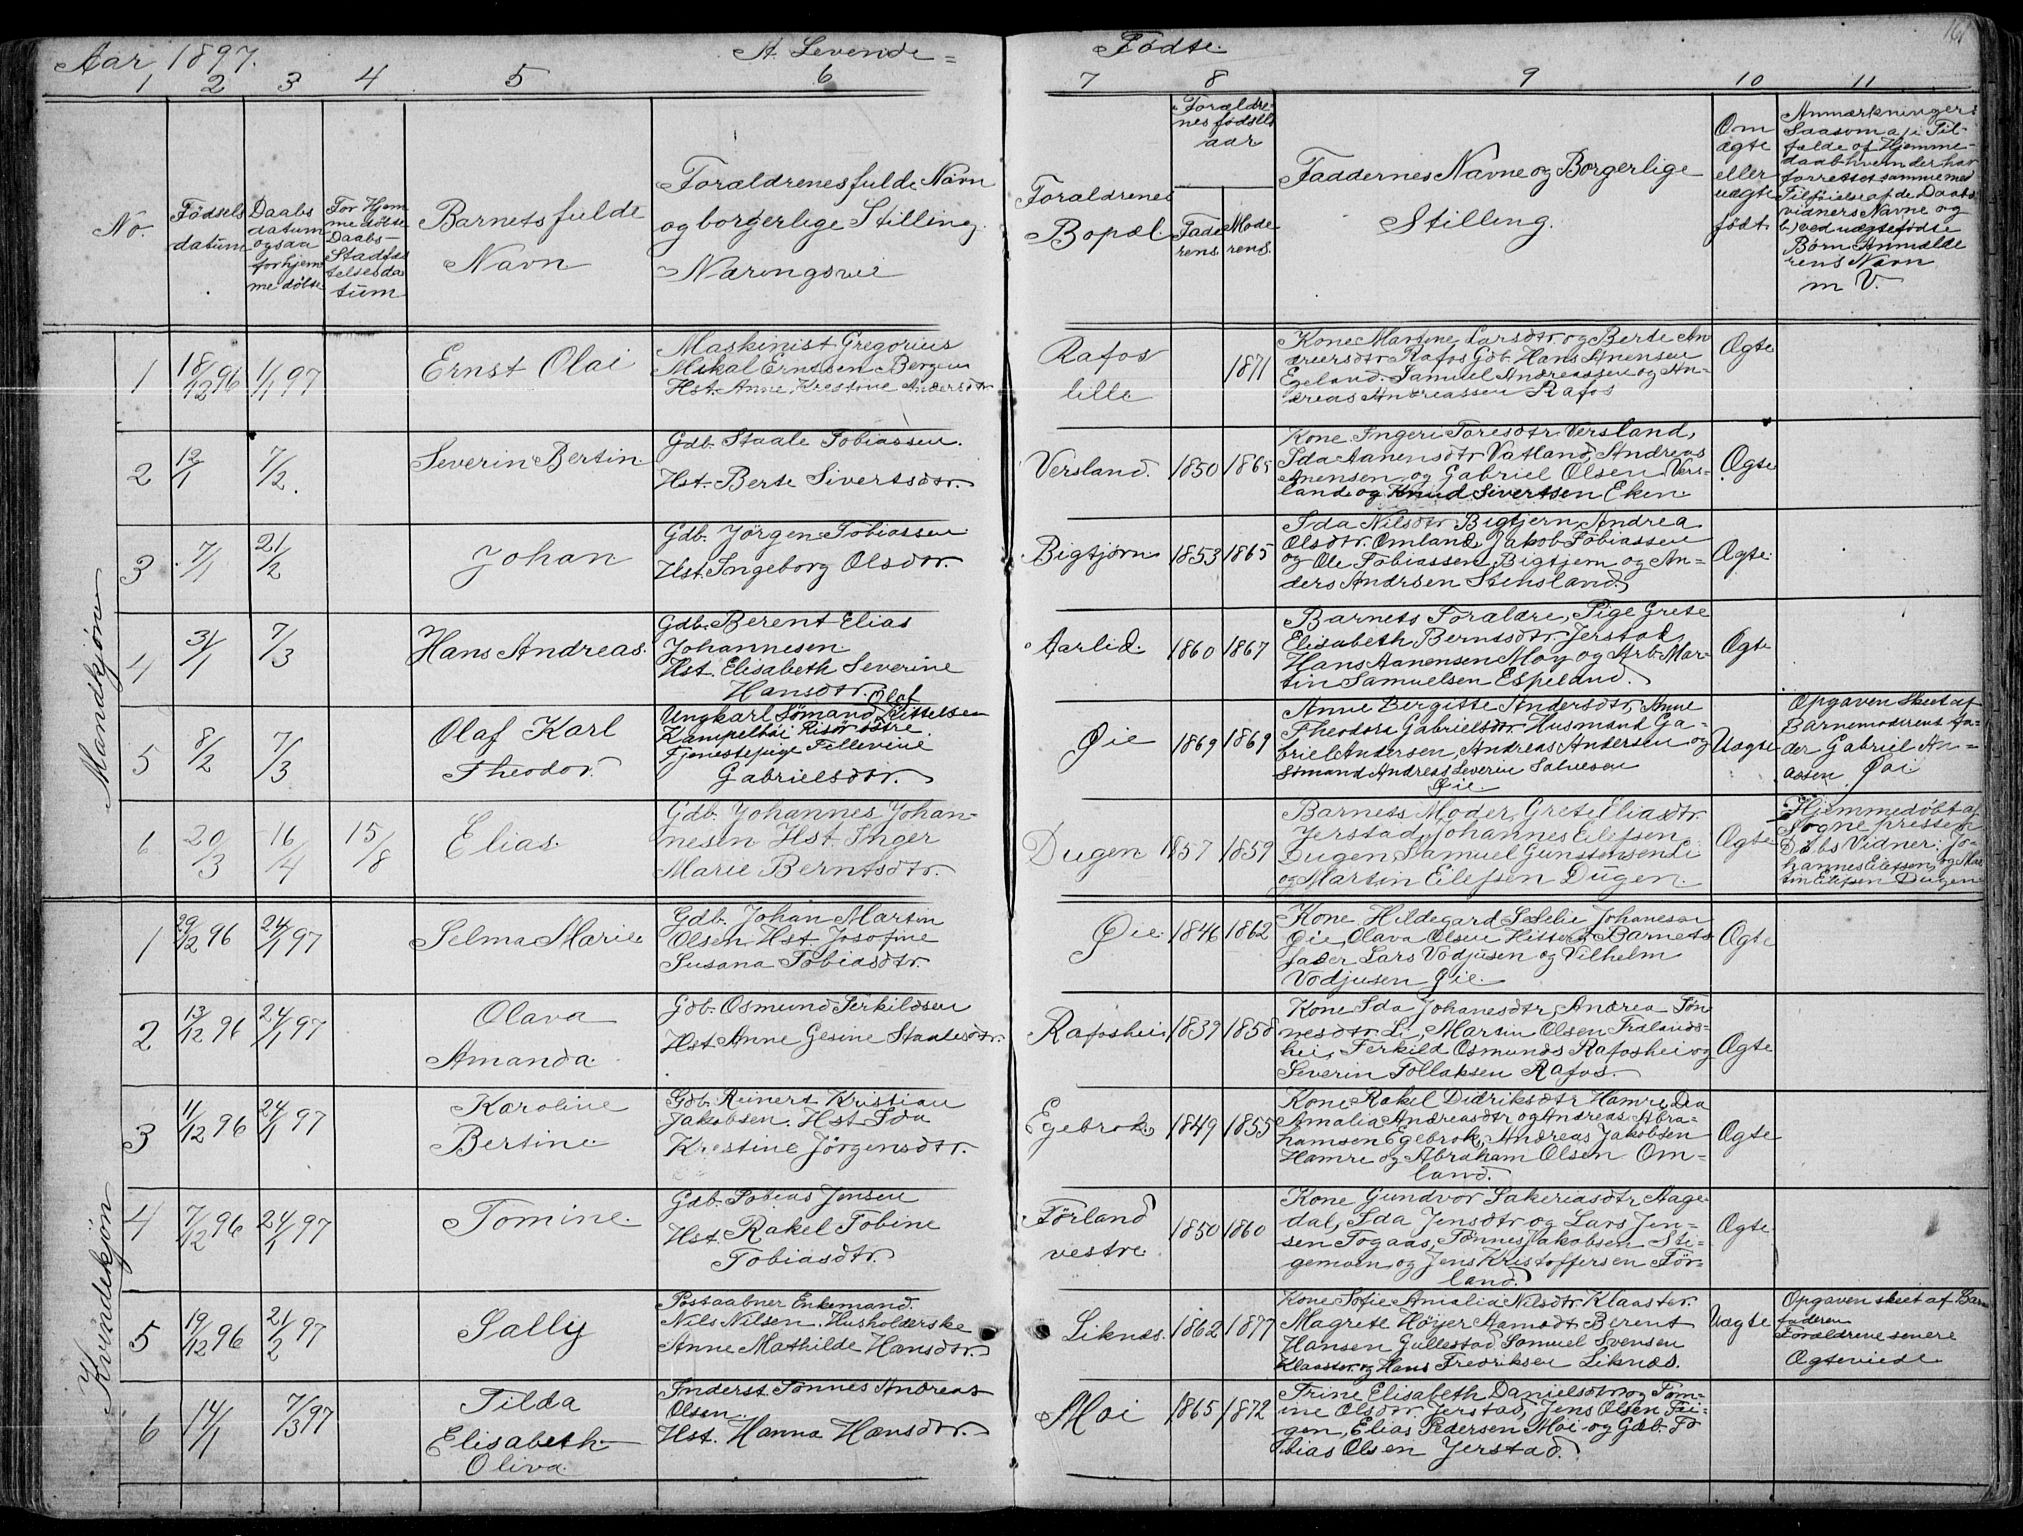 Aar 1897. A. Levende = Fødte. 161
1 2 3 4 5 6 7 8 9 10 11
No.
Fødsels
datum
Daabs
datum
ogsaa
for hjem
me døbte
For Hjem
me døbte
Daabs
Stadfæs
telsesda
tum
Barnets fulde
Navn
Forældrenes fulde Navn
og borgerlige Stilling
Næringsvei
Forældrenes
Bopæl
Forældre-
nes fødsels
aar
Fade
rens
Mode
rens
Faddernes Navne og Borgerlige
Stilling.
Om
ægte
eller
uægte
født
Anmærkninger
Saasom a, i Til-
fælde af Hjemme-
daab hvem der har
forrettet samme med
Tilføielse af de Daabs
vidners Navne og
b) ved uægte fødte
Børn Anmelde
rens Navn
m V.
Mandkjøn
1
18/12 96
1/1 97
Ernst Olai
Maskinist Gregorius
Mikal Erntsen Bergen
Hst. Anne Krestine Andersdtr
Rafos
lille
1871
Kone Martine Larsdtr og Berte An
dreersdtr Rafos Gdb. Hans Anensen
Egeland. Samuel Andreassen og An-
dreas Andreassen Rafos
Ægte
2
12/1
7/2.
Severin Bertin
Gdb. Staale Tobiassen.
Hst. Berte Sivertsdtr.
Versland.
1850
1865
Kone Ingeri Toresdtr Versland,
Ida Aanensdtr Vatland, Andreas
Anensen og Gabriel Olsen Vers-
land og Knud Sivertsen Eken
Ægte
3
7/1
21/2
Johan
Gdb. Jørgen Tobiassen
Hst. Ingeborg Olsdtr.
Bigtjørn
1853
1865
Ida Nilsdtr Bigtjern, Andrea
Olsdtr Omland, Jakob Tobiassen
og Ole Tobiassen Bigtjern og An-
ders Andrsen Stensland.
Ægte.
4
31/1
7/3
Hans Andreas.
Gdb. Berent Elias
Johannesen
Hst. Elisabeth Severine
Hansdtr.
Aarlid.
1860
1867
Barnets Forældre, Pige Grete
Elisabeth Berntsdtr. Jerstad,
Hans Aanensen Moy og Arb. Mar-
tin Samuelsen Espeland.
Ægte
5
8/2
7/3
Olaf Karl
Theodor.
Olaf
Ungkarl Sømand Kittelsen
Kampelhei Risør østre.
Tjenestepige Tillevine
Gabrielsdtr.
Øie
1869
1869
Anne Bergitte Andersdtr, Anne
Theodora Gabrielsdtr. Husmand Ga-
briel Andersen, Andreas Andersen og
Sømand Andreas Severin Salvesen
Øie.
Uægte
Opgaven skeet af
Barnemoderens fa-
der Gabriel An-
assen Øai
6
20/3
16/4
15/8
Elias.
Gdb. Johannes Johan-
nesen Hst. Inger
Marie Berntsdtr.
Dugen
1857
1859
Barnets Moder, Grete Eliasdtr
Jerstad, Johannes Eilefsen
Dugen Samuel Gunstensen Li
og Martin Eilefsen Dugen.
Ægte
Hjemmedøbt af
Sognepresten
Dåbs Vidner: Jo-
hannes Eilefsen og Mar
tin Eilefsen Dugen
Kvindekjøn
1
29/12 96
24/1 97
Selma Marie
Gdb. Johan Martin
Olsen Hst Josofine
Susana Tobiasdtr.
Øie
1846
1862
Kone Hildegard Selelie Johanesen
Øie, Olava Olsen Hitterø, Barnets
fader Lars Vodjusen og Vilhelm
Vodjusen Øie.
Ægte
2
13/12 96
24/1 97
Olava
Amanda.
Gdb. Osmund Terkildsen
Hst Anne Gesine Staalesdtr.
Rafoshei
1839
1858
Kone Ida Johanesdtr, Andrea Tøn-
nesdtr Li, Martin Olsen Frølands-
hei, Terkild Osmunds Rafoshei og
Severin Tollaksen Rafos.
Ægte
3
11/12 96
24/1 97
Karoline
Bertine.
Gdb. Reinert Kristian
Jakobsen. Hst. Ida
Krestine Jørgensdtr.
Egebrok
1849
1855
Kone Rakel Didriksdtr Hamre, Dea
Amalia Andreasdtr og Andreas Abra-
hamsen Egebrok, Andreas Jakobsen
Hamre og Abraham Olsen Om-
land.
Ægte
4
7/12 96
24/1 97
Tomine.
Gdb. Tobias Jensen
Hst Rakel Tobine
Tobiasdtr.
Førland
vestre.
1850
1860
Kone Gundvor Sakeriasdtr Aage-
dal, Ida Jensdtr og Lars Jen-
sen Togaas, Tønnes Jakobsen Sti-
gemoen og Jens Kristoffersen Før-
land.
Ægte
5
19/12 96
21/2 97
Sally
Postaabner Enkemand.
Nils Nilsen. Husholderske
Anne Mathilde Hansdtr.
Liknes.
1862
1877
Kone Sofie Amalia Nilsdtr Klaaster.
Magrete Høyer Aamodt Berent
Hansen Gullestad Samuel Svensen
Klaaster og Hans Fredriksen Liknes.
Uægte
Opgaven skeet af Barne
faderen
Forældrene senere
Ægteviede
6
14/1
7/3 97
Tilda
Elisabeth
Oliva
Inderst Tønnes Andreas
Olsen
Hst. Hanna Hansdtr.
Moi
1865
1872
Trine Elisabeth Danielsdtr og Tom-
ine Olsdtr Jerstad, Jens Olsen Fei-
gen, Elias Pedersen Moi og Gdb. To
bias Olsen Jerstad.